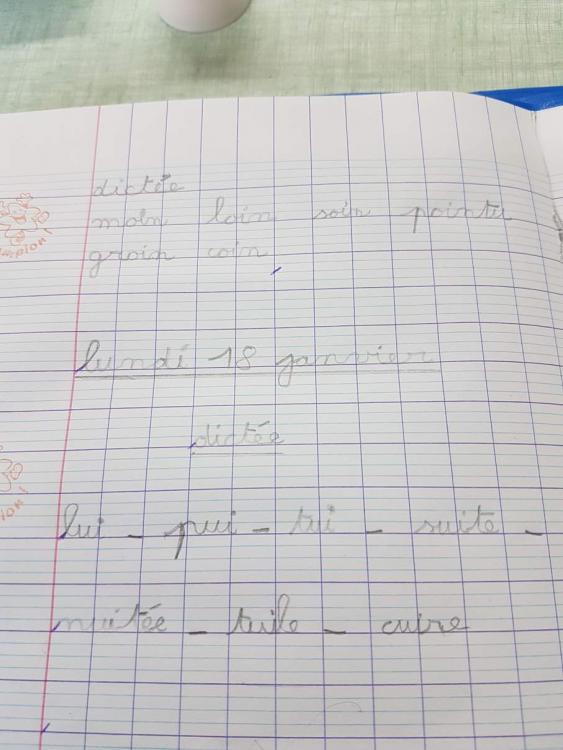 dictée
moin loin soin pointu
groin coin
lundi 18 janvier
dictée
lui - pui - tui - suite -
nuitée - tuile - cuire